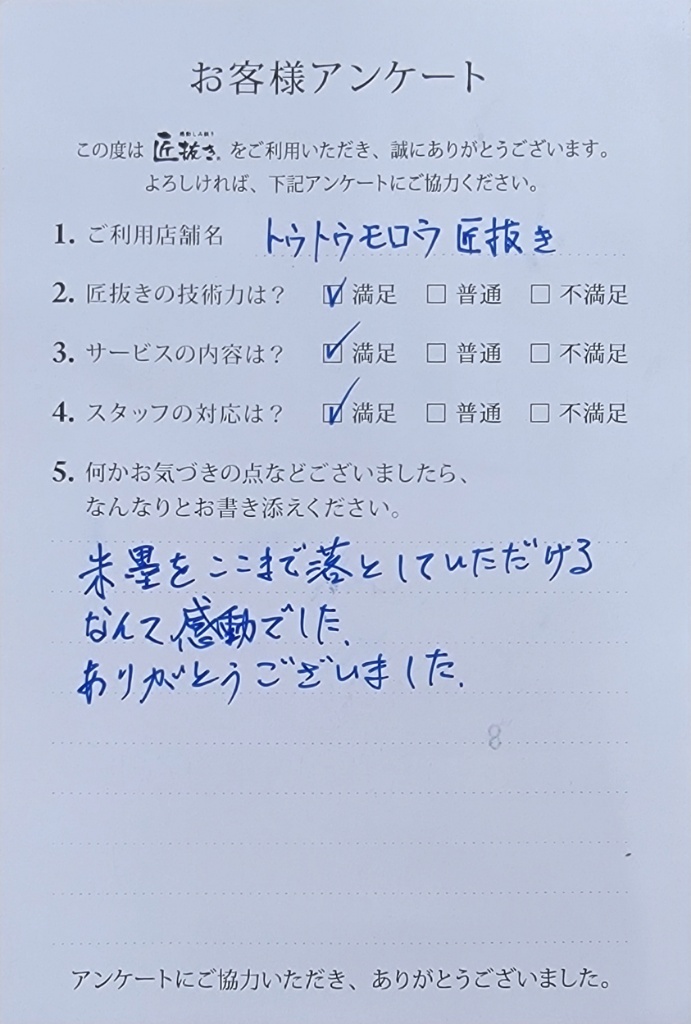 お客様アンケート
この度は 匠抜き をご利用いただき、誠にありがとうございます。
よろしければ、下記アンケートにご協力ください。
1. ご利用店舗名 トゥトゥモロウ 匠抜き
2. 匠抜きの技術力は？ ☑ 満足 □ 普通 □ 不満足
3. サービスの内容は？ ☑ 満足 □ 普通 □ 不満足
4. スタッフの対応は？ ☑ 満足 □ 普通 □ 不満足
5. 何かお気づきの点などございましたら、
なんなりとお書き添えください。
朱墨をここまで落としていただける
なんて感動でした.
ありがとうございました.
8
アンケートにご協力いただき、ありがとうございました。